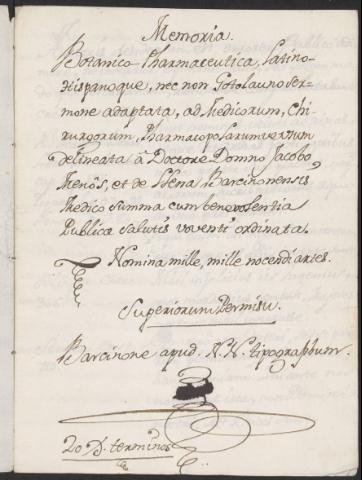 Memoria.
Botanico Pharmaceutica, Latino-
Hispanoque, nec non Gotolauno Ser-
mone adaptata, ad Medicorum, Chi-
rurgorum, Pharmacopolarum versum
delineata à Doctore Domno Jacobo,
Menós, et de Llena Barcinonensis
Medico summa cum benevolentia
Publicæ salutis voventi ordinata.
Nomina mille, mille nocendi artes.
Superiorum Permisu.
Barcinone apud. N. N. tipographum.
20 D. terminos